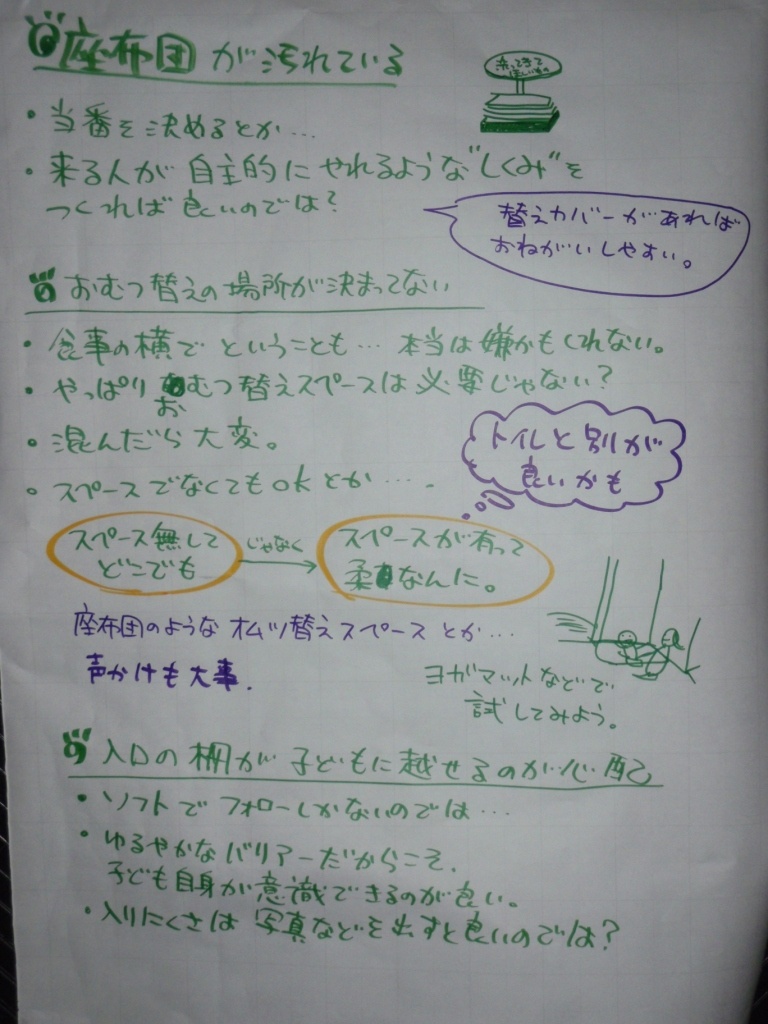 座布団が汚れている
洗ってきて
ほしいもの
・当番を決めるとか…
・来る人が自主的にやれるような"しくみ"を
つくれば良いのでは?
替えカバーがあれば
おねがいしやすい。
おむつ替えの場所が決まってない
・食事の横でということも…本当は嫌かもしれない。
・やっぱりおむつ替えスペースは必要じゃない?
・混んだら大変。
・スペースでなくてもokとか….
トイレと別が
良いかも
スペース無して
どこでも
じゃなく
スペースが有って
柔軟なんに。
座布団のようなオムツ替えスペースとか…
声かけも大事.
ヨガマットなどで
試してみよう。
入口の棚が子どもに越せるのが心配
・ソフトでフォローしかないのでは…
・ゆるやかなバリアーだからこそ.
子ども自身が意識できるのが良い。
・入りにくさは写真などを出すと良いのでは?